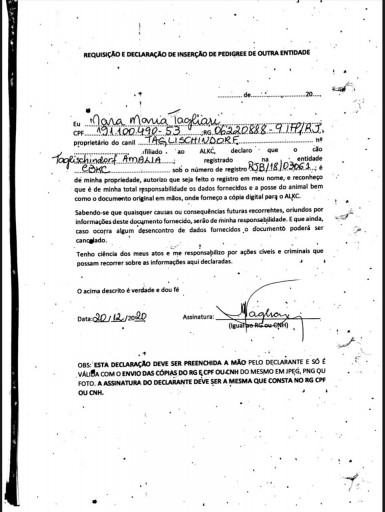 REQUISIÇÃO E DECLARAÇÃO DE INSERÇÃO DE PEDIGREE DE OUTRA ENTIDADE
de de 20
Eu Mara Maria Tagliari
CPF 191.100.490-53 RG 06220888-9 IFP/RJ.
proprietário do canil TAGLISCHINDORF nº
filiado ao ALKC, declaro que o cão
Taglischindorf AMALIA registrado na entidade
CBKC sob o número de registro RJB/18/03061 é
de minha propriedade, autorizo que seja feito o registro em meu nome, e reconheço
que é de minha total responsabilidade os dados fornecidos e a posse do animal bem
como o documento original em mãos, onde forneço a cópia digital para o ALKC.
Sabendo-se que quaisquer causas ou consequências futuras recorrentes, oriundos por
informações deste documento fornecido, serão de minha responsabilidade. E que ainda,
caso ocorra algum desencontro de dados fornecidos o documento poderá ser
cancelado.
Tenho ciência dos meus atos e me responsabilizo por ações cíveis e criminais que
possam recorrer sobre as informações aqui declaradas.
O acima descrito é verdade e dou fé
Data: 20/12/2020 Assinatura: Tagliari
(Igual ao RG ou CNH)
OBS: ESTA DECLARAÇÃO DEVE SER PREENCHIDA A MÃO PELO DECLARANTE E SÓ É
VÁLIDA COM O ENVIO DAS CÓPIAS DO RG E CPF OU CNH DO MESMO EM JPEG, PNG OU
FOTO. A ASSINATURA DO DECLARANTE DEVE SER A MESMA QUE CONSTA NO RG CPF
OU CNH.